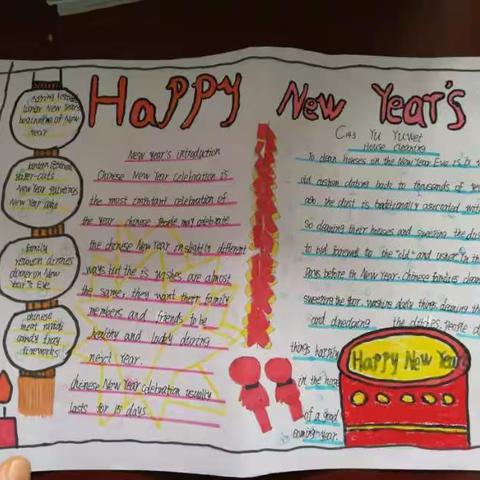 Happy New Year's
spring Festival
Lunar New Year
beginning of New
Year
Lantern Festival
paper-cuts
New Year paintings
New Year cake
family
reunion dinner
dinner on New
Year's Eve
chinese
meat
candy tray
fireworks
New Year's introduction
Chinese New Year celebration is
the most important celebration of
the year chinese people may celebrate
the chinese New Year in slightly different
ways but the is wishes are almost
the same, they want their family
members and friends to be
healthy and lucky during
next year.
chinese New Year celebration usually
lasts for 15 days
House cleaning
To clean houses on the New Year Eve is
old custom dating back to thousands of
ago. the dust is traditionally associated with
So cleaning their houses and sweeping the
to bid farewell to the "old" and usher in the
Days before the New Year. chinese families
sweeping the floor, washing daily things cleaning the
and
things happen
in the
of a good
coming year.
Happy New Year